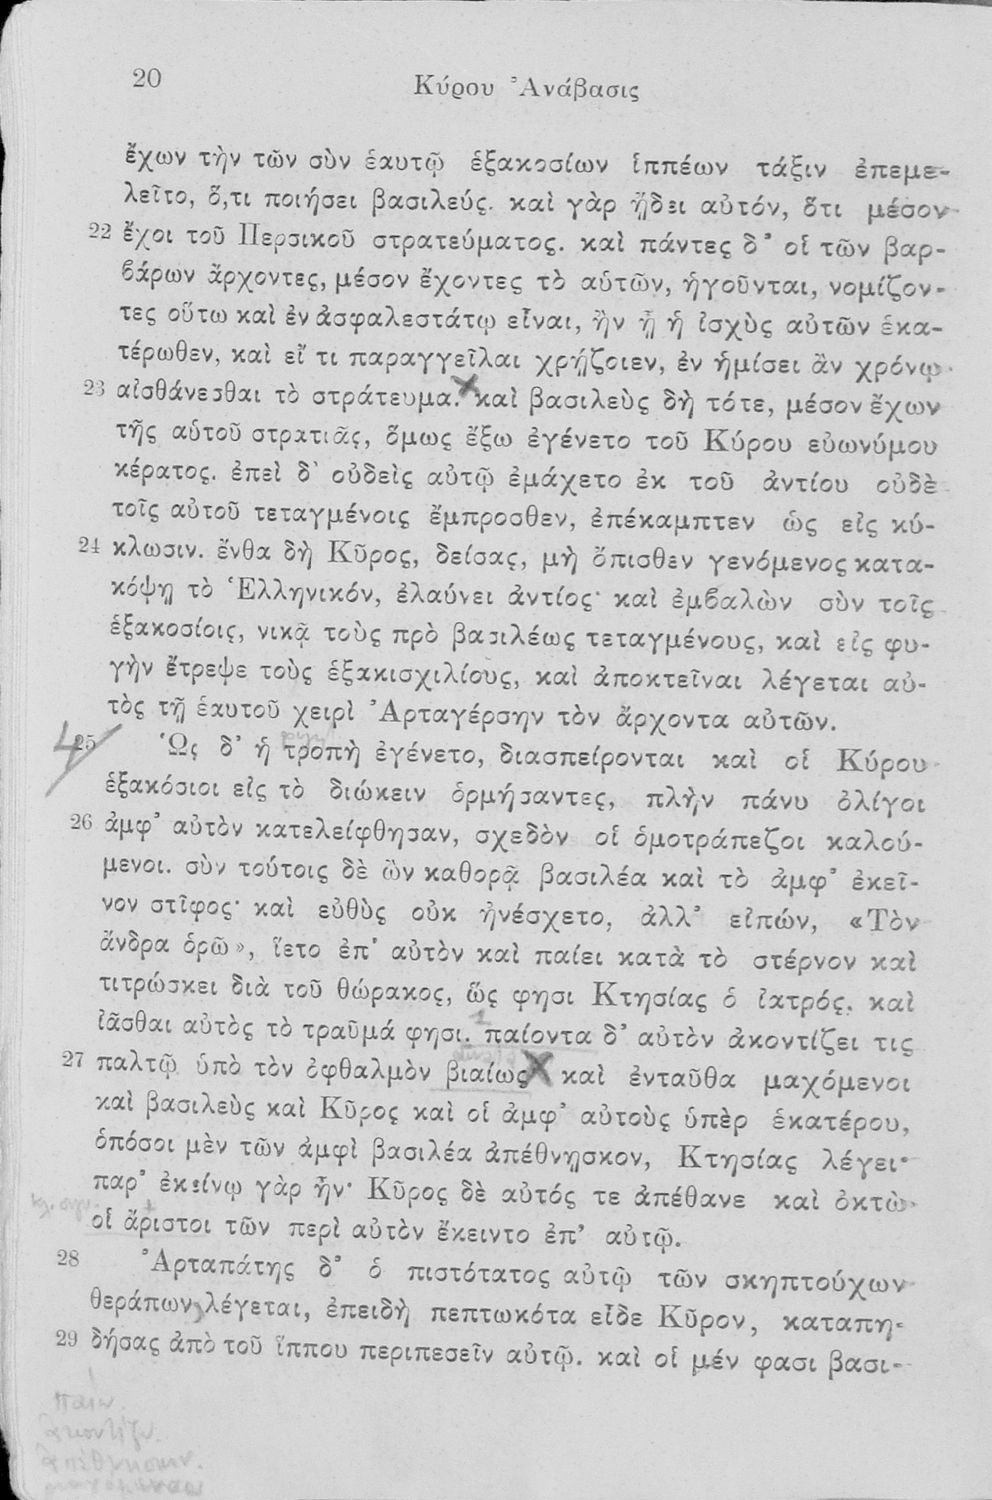 20
Κύρου Ἀνάβασις
ἔχων τὴν τῶν σὺν ἑαυτῷ ἑξακοσίων ἱππέων τάξιν ἐπεμε-
λεῖτο, ὅ,τι ποιήσει βασιλεύς. καὶ γὰρ ᾔδει αὐτόν, ὅτι μέσον
22 ἔχοι τοῦ Περσικοῦ στρατεύματος. καὶ πάντες δ' οἱ τῶν βαρ-
βάρων ἄρχοντες, μέσον ἔχοντες τὸ αὑτῶν, ἡγοῦνται, νομίζον-
τες οὕτω καὶ ἐν ἀσφαλεστάτῳ εἶναι, ἢν ᾖ ἡ ἰσχὺς αὐτῶν ἑκα-
τέρωθεν, καὶ εἴ τι παραγγεῖλαι χρῄζοιεν, ἐν ἡμίσει ἂν χρόνῳ
23 αἰσθάνεσθαι τὸ στράτευμα. καὶ βασιλεὺς δὴ τότε, μέσον ἔχων
τῆς αὑτοῦ στρατιᾶς, ὅμως ἔξω ἐγένετο τοῦ Κύρου εὐωνύμου
κέρατος. ἐπεὶ δ' οὐδεὶς αὐτῷ ἐμάχετο ἐκ τοῦ ἀντίου οὐδὲ
τοῖς αὐτοῦ τεταγμένοις ἔμπροσθεν, ἐπέκαμπτεν ὡς εἰς κύ-
24 κλωσιν. ἔνθα δὴ Κῦρος, δείσας, μὴ ὄπισθεν γενόμενος κατα-
κόψῃ τὸ Ἑλληνικόν, ἐλαύνει ἀντίος· καὶ ἐμβαλὼν σὺν τοῖς
ἑξακοσίοις, νικᾷ τοὺς πρὸ βασιλέως τεταγμένους, καὶ εἰς φυ-
γὴν ἔτρεψε τοὺς ἑξακισχιλίους, καὶ ἀποκτεῖναι λέγεται αὐ-
τὸς τῇ ἑαυτοῦ χειρὶ Ἀρταγέρσην τὸν ἄρχοντα αὐτῶν.
25 Ὡς δ' ἡ τροπὴ ἐγένετο, διασπείρονται καὶ οἱ Κύρου
ἑξακόσιοι εἰς τὸ διώκειν ὁρμήσαντες, πλὴν πάνυ ὀλίγοι
26 ἀμφ' αὐτὸν κατελείφθησαν, σχεδὸν οἱ ὁμοτράπεζοι καλού-
μενοι. σὺν τούτοις δὲ ὢν καθορᾷ βασιλέα καὶ τὸ ἀμφ' ἐκεῖ-
νον στῖφος· καὶ εὐθὺς οὐκ ἠνέσχετο, ἀλλ' εἰπών, «Τὸν
ἄνδρα ὁρῶ», ἵετο ἐπ' αὐτὸν καὶ παίει κατὰ τὸ στέρνον καὶ
τιτρώσκει διὰ τοῦ θώρακος, ὥς φησι Κτησίας ὁ ἰατρός, καὶ
ἰᾶσθαι αὐτὸς τὸ τραῦμά φησι. παίοντα δ' αὐτὸν ἀκοντίζει τις
27 παλτῷ ὑπὸ τὸν ὀφθαλμὸν βιαίως καὶ ἐνταῦθα μαχόμενοι
καὶ βασιλεὺς καὶ Κῦρος καὶ οἱ ἀμφ' αὐτοὺς ὑπὲρ ἑκατέρου,
ὁπόσοι μὲν τῶν ἀμφὶ βασιλέα ἀπέθνῃσκον, Κτησίας λέγει·
παρ' ἐκείνῳ γὰρ ἦν· Κῦρος δὲ αὐτός τε ἀπέθανε καὶ ὀκτὼ
οἱ ἄριστοι τῶν περὶ αὐτὸν ἔκειντο ἐπ' αὐτῷ.
28 Ἀρταπάτης δ' ὁ πιστότατος αὐτῷ τῶν σκηπτούχων
θεράπων λέγεται, ἐπειδὴ πεπτωκότα εἶδε Κῦρον, καταπη-
29 δήσας ἀπὸ τοῦ ἵππου περιπεσεῖν αὐτῷ. καὶ οἱ μέν φασι βασι-